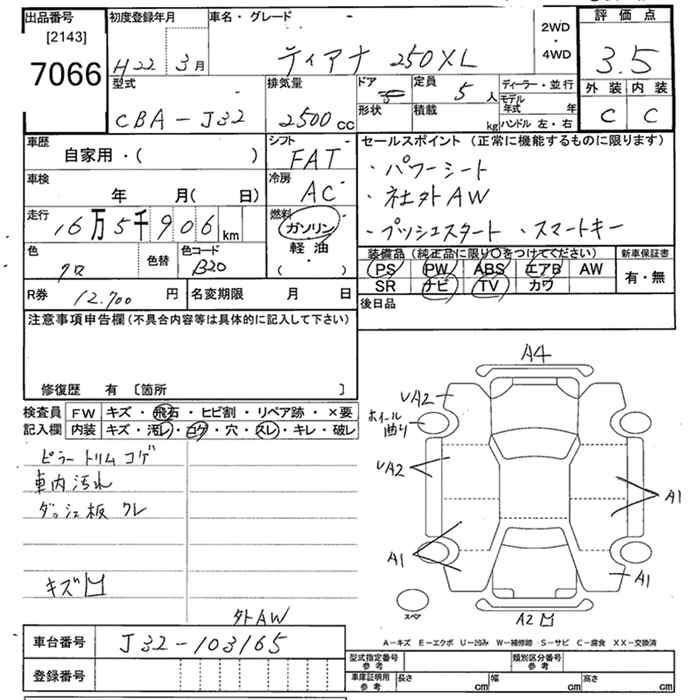 出品番号 初度登録年月 車名・グレード 評価点
[2143] 2WD
7066 H22 3月 ティアナ 250XL ・ 4WD 3.5
型式 排気量 ドア 定員 ディーラー・並行 外装 内装
CBA-J32 2500cc 5 5人 モデル年式 年 C C
形状 積載 kg ハンドル 左・右
車歴 シフト セールスポイント(正常に機能するものに限ります)
自家用・( ) FAT ・パワーシート
車検 冷房 ・社外AW
年 月( 日) AC ・プッシュスタート ・スマートキー
走行 燃料
16万5千906km ガソリン 装備品(純正品に限り○をつけてください) 新車保証書
色 色替 色コード 軽油 PS PW ABS エアB AW 有・無
クロ B20 ( ・ ) SR ナビ TV カワ
R券 12,700円 名変期限 月 日 後日品
注意事項申告欄(不具合内容等は具体的に記入して下さい)
修復歴 有 〔箇所 〕
検査員 FW キズ・飛石・ヒビ割・リペア跡・×要
記入欄 内装 キズ・汚レ・コゲ・穴・スレ・キレ・破レ
ピラートリム コゲ
車内汚れ
ダッシュ板 クレ
キズ凹
外AW
A4
UA2
ホイール曲り
UA2
A1
A1
A1
スペア
A2凹
A-キズ E-エクボ U-凹み W-補修跡 S-サビ C-腐食 XX-交換済
車台番号 J32-103165
登録番号
型式指定番号参考 類別区分番号参考
車庫証明用参考 長さ cm 幅 cm 高さ cm